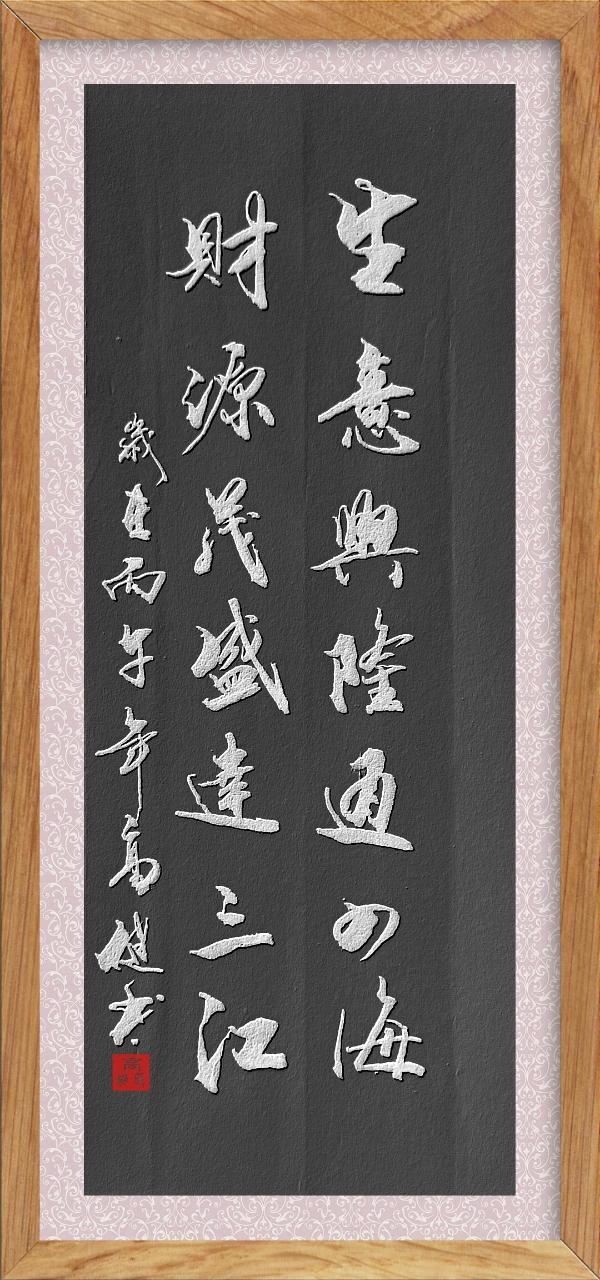 生意興隆通四海
財源茂盛達三江
歲在丙午年高健书